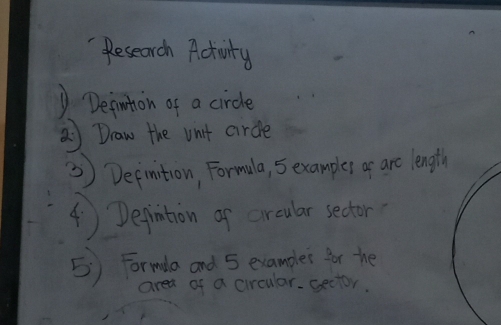 Research Activity
1) Definition of a circle
2) Draw the unit circle
3) Definition, Formula, 5 examples of arc length
4) Definition of circular sector
5) Formula and 5 examples for the
area of a circular sector.